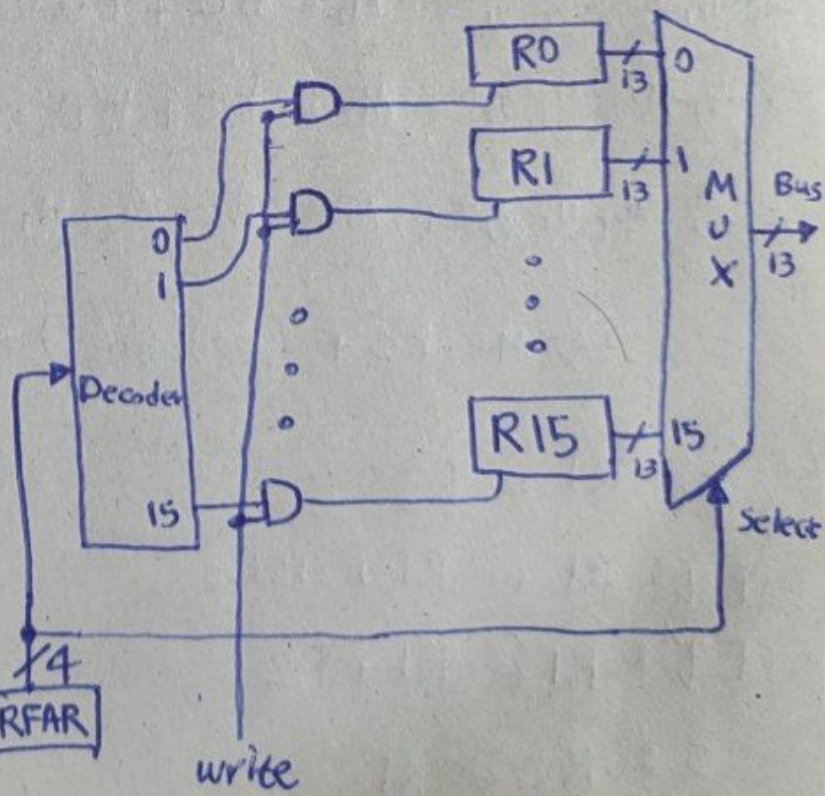 R0
0
13
R1
1
13
M
U
X
Bus
13
0
1
Decoder
R15
15
13
15
Select
4
RFAR
write